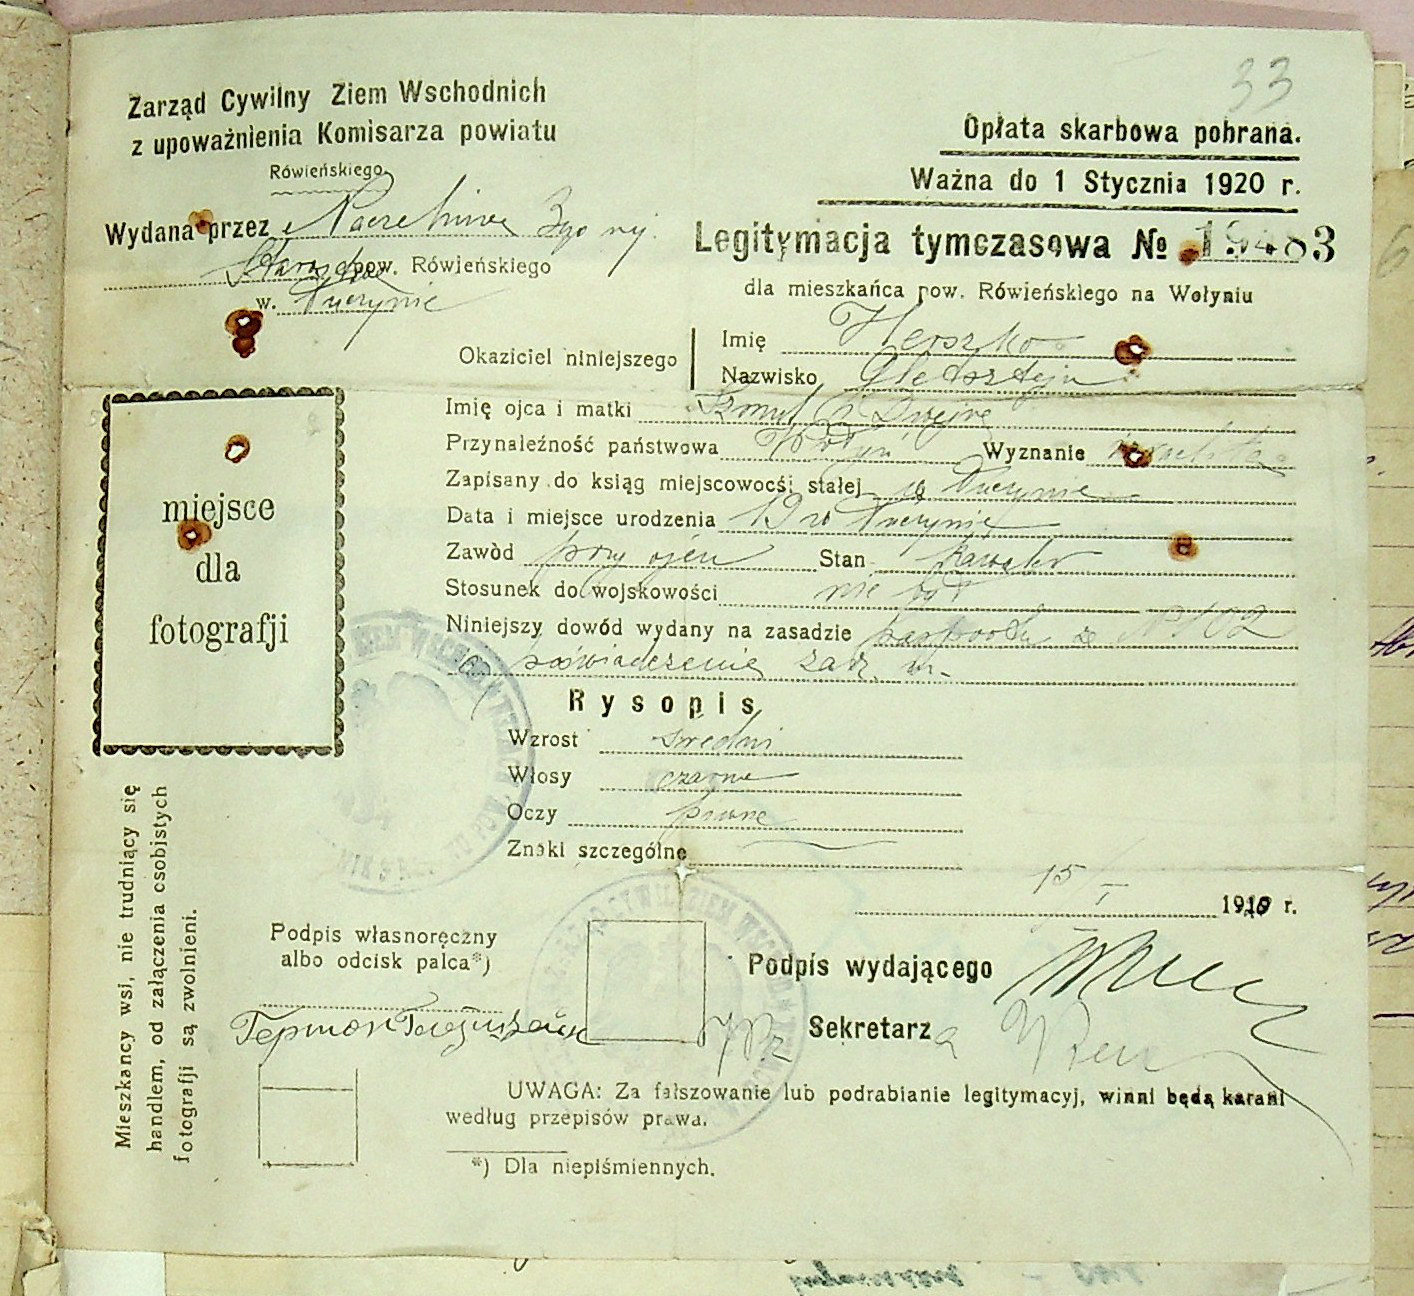 33
Zarząd Cywilny Ziem Wschodnich
z upoważnienia Komisarza powiatu
Rówieńskiego
Opłata skarbowa pobrana.
Ważna do 1 Stycznia 1920 r.
Wydana przez
pow. Rówieńskiego
w. Tuczynie
Legitymacja tymczasowa № 19483
dla mieszkańca pow. Rówieńskiego na Wołyniu
Okaziciel niniejszego
Imię Herszko
Nazwisko
Imię ojca i matki Szmul i Dwejre
Przynależność państwowa Wołyń Wyznanie
Zapisany do ksiąg miejscowości stałej w Tuczynie
Data i miejsce urodzenia 19 w Tuczynie
Zawód przy ojcu Stan kawaler
Stosunek do wojskowości nie był
Niniejszy dowód wydany na zasadzie paszportu za № 102
poświadczenie zarz. m.
Rysopis
Wzrost średni
Włosy czarne
Oczy piwne
Znaki szczególne
miejsce
dla
fotografji
Mieszkancy wsi, nie trudniący się
handlem, od załączenia osobistych
fotografji są zwolnieni.
15/I 1920 r.
Podpis własnoręczny
albo odcisk palca*)
Podpis wydającego
Sekretarz
UWAGA: Za fałszowanie lub podrabianie legitymacyj, winni będą karani
według przepisów prawa.
*) Dla niepiśmiennych.